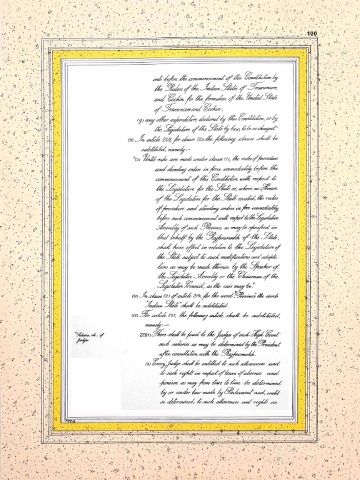 100
into before the commencement of this Constitution by
the Rulers of the Indian States of Travancore
and Cochin for the formation of the United State
of Travancore and Cochin;
(g) any other expenditure declared by this Constitution, or by
the Legislature of the State by law, to be so charged."
In article 208, for clause (2), the following clause shall be
substituted, namely:—
"(2) Until rules are made under clause (1), the rules of procedure
and standing orders in force immediately before the
commencement of this Constitution with respect to
the Legislature for the State or, where no House
of the Legislature for the State existed, the rules
of procedure and standing orders in force immediately
before such commencement with respect to the Legislative
Assembly of such Province, as may be specified in
that behalf by the Rajpramukh of the State,
shall have effect in relation to the Legislature of
the State subject to such modifications and adapta-
tions as may be made therein by the Speaker of
the Legislative Assembly or the Chairman of the
Legislative Council, as the case may be."
In clause (2) of article 214, for the word "Province" the words
"Indian State" shall be substituted.
For article 221, the following article shall be substituted,
namely:—
Salaries, etc., of
Judges
"221. (1) There shall be paid to the Judges of each High Court
such salaries as may be determined by the President
after consultation with the Rajpramukh.
(2) Every Judge shall be entitled to such allowances and
to such rights in respect of leave of absence and
pension as may from time to time be determined
by or under law made by Parliament and, until
so determined, to such allowances and rights as